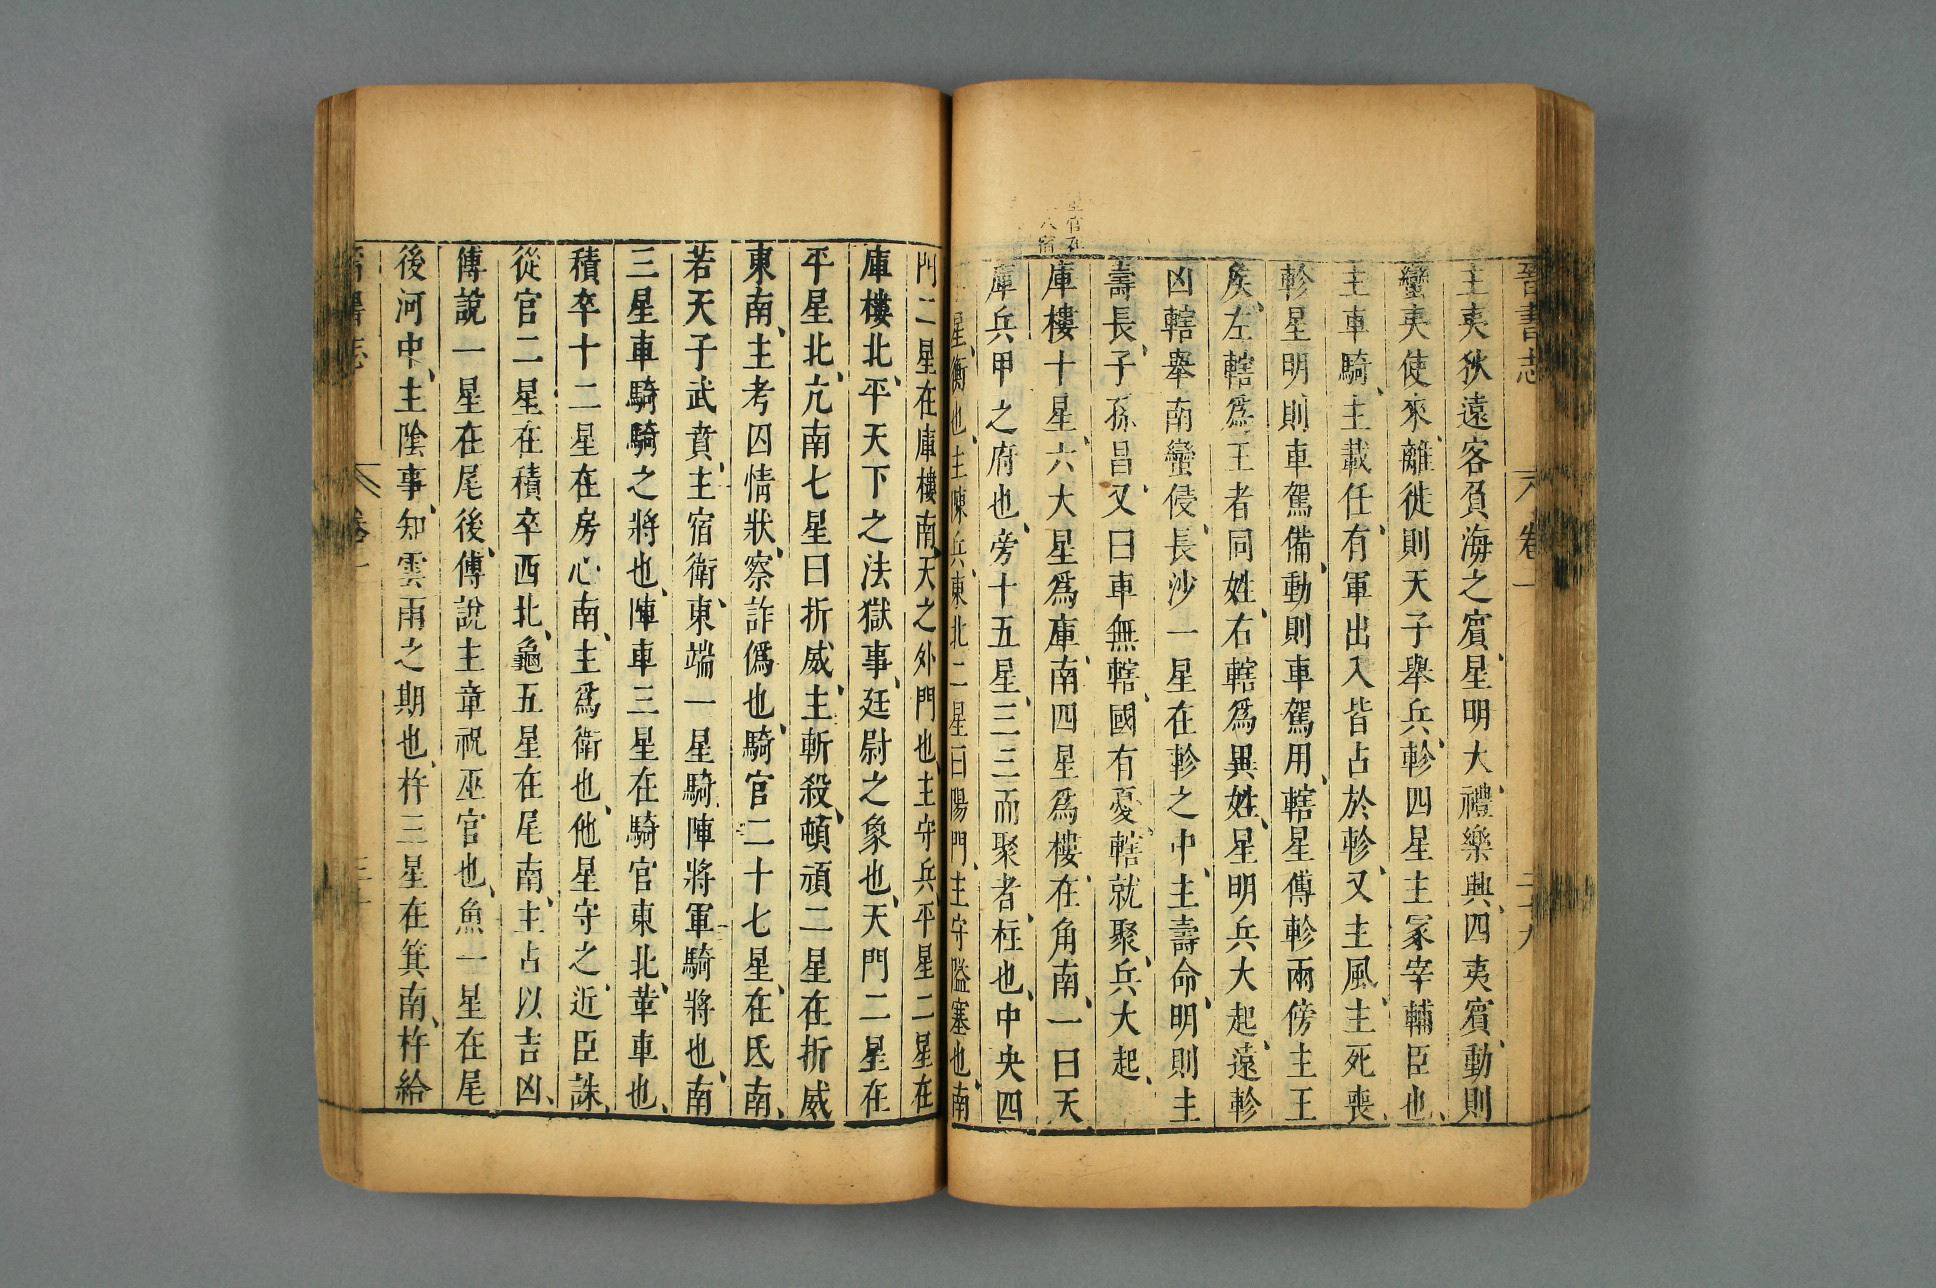 晉書志 卷一 二十九
主夷狄遠客負海之賔、星明大、禮樂興、四夷賔、動則
蠻夷使來、離徙則天子舉兵、軫四星主冢宰輔臣也、
主車騎、主載任、有軍出入皆占於軫、又主風、主死喪、
軫星明則車駕備、動則車駕用、轄星傅軫兩傍主王
矦、左轄爲王者同姓、右轄爲異姓、星明兵大起、遠軫
凶、轄舉南蠻侵、長沙一星在軫之中、主壽命、明則主
壽長、子孫昌、又曰車無轄、國有憂、轄就聚、兵大起、
庫樓十星、六大星爲庫、南四星爲樓、在角南、一曰天
庫兵甲之府也、旁十五星、三三而聚者、柱也、中央四
星、衡也、主陳兵、東北二星曰陽門、主守隘塞也、南
門二星在庫樓南、天之外門也、主守兵、平星二星在
庫樓北、平天下之法獄事、廷尉之象也、天門二星在
平星北、亢南七星曰折威、主斬殺、頓頑二星在折威
東南、主考囚情狀、察詐僞也、騎官二十七星、在氐南、
若天子武賁、主宿衛、東端一星騎陣將軍騎將也、南
三星車騎騎之將也、陣車三星在騎官東北、革車也、
積卒十二星在房心南、主爲衛也、他星守之、近臣誅、
從官二星在積卒西北、龜五星在尾南、主占以吉凶、
傅說一星在尾後、傅說主章祝巫官也、魚一星在尾
後河中、主陰事、知雲雨之期也、杵三星在箕南、杵給